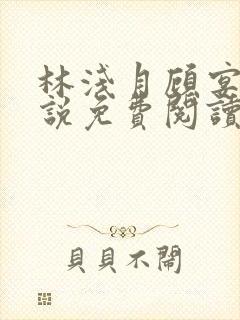 林淺月顧宴
說免費閱讀
貝貝不鬧